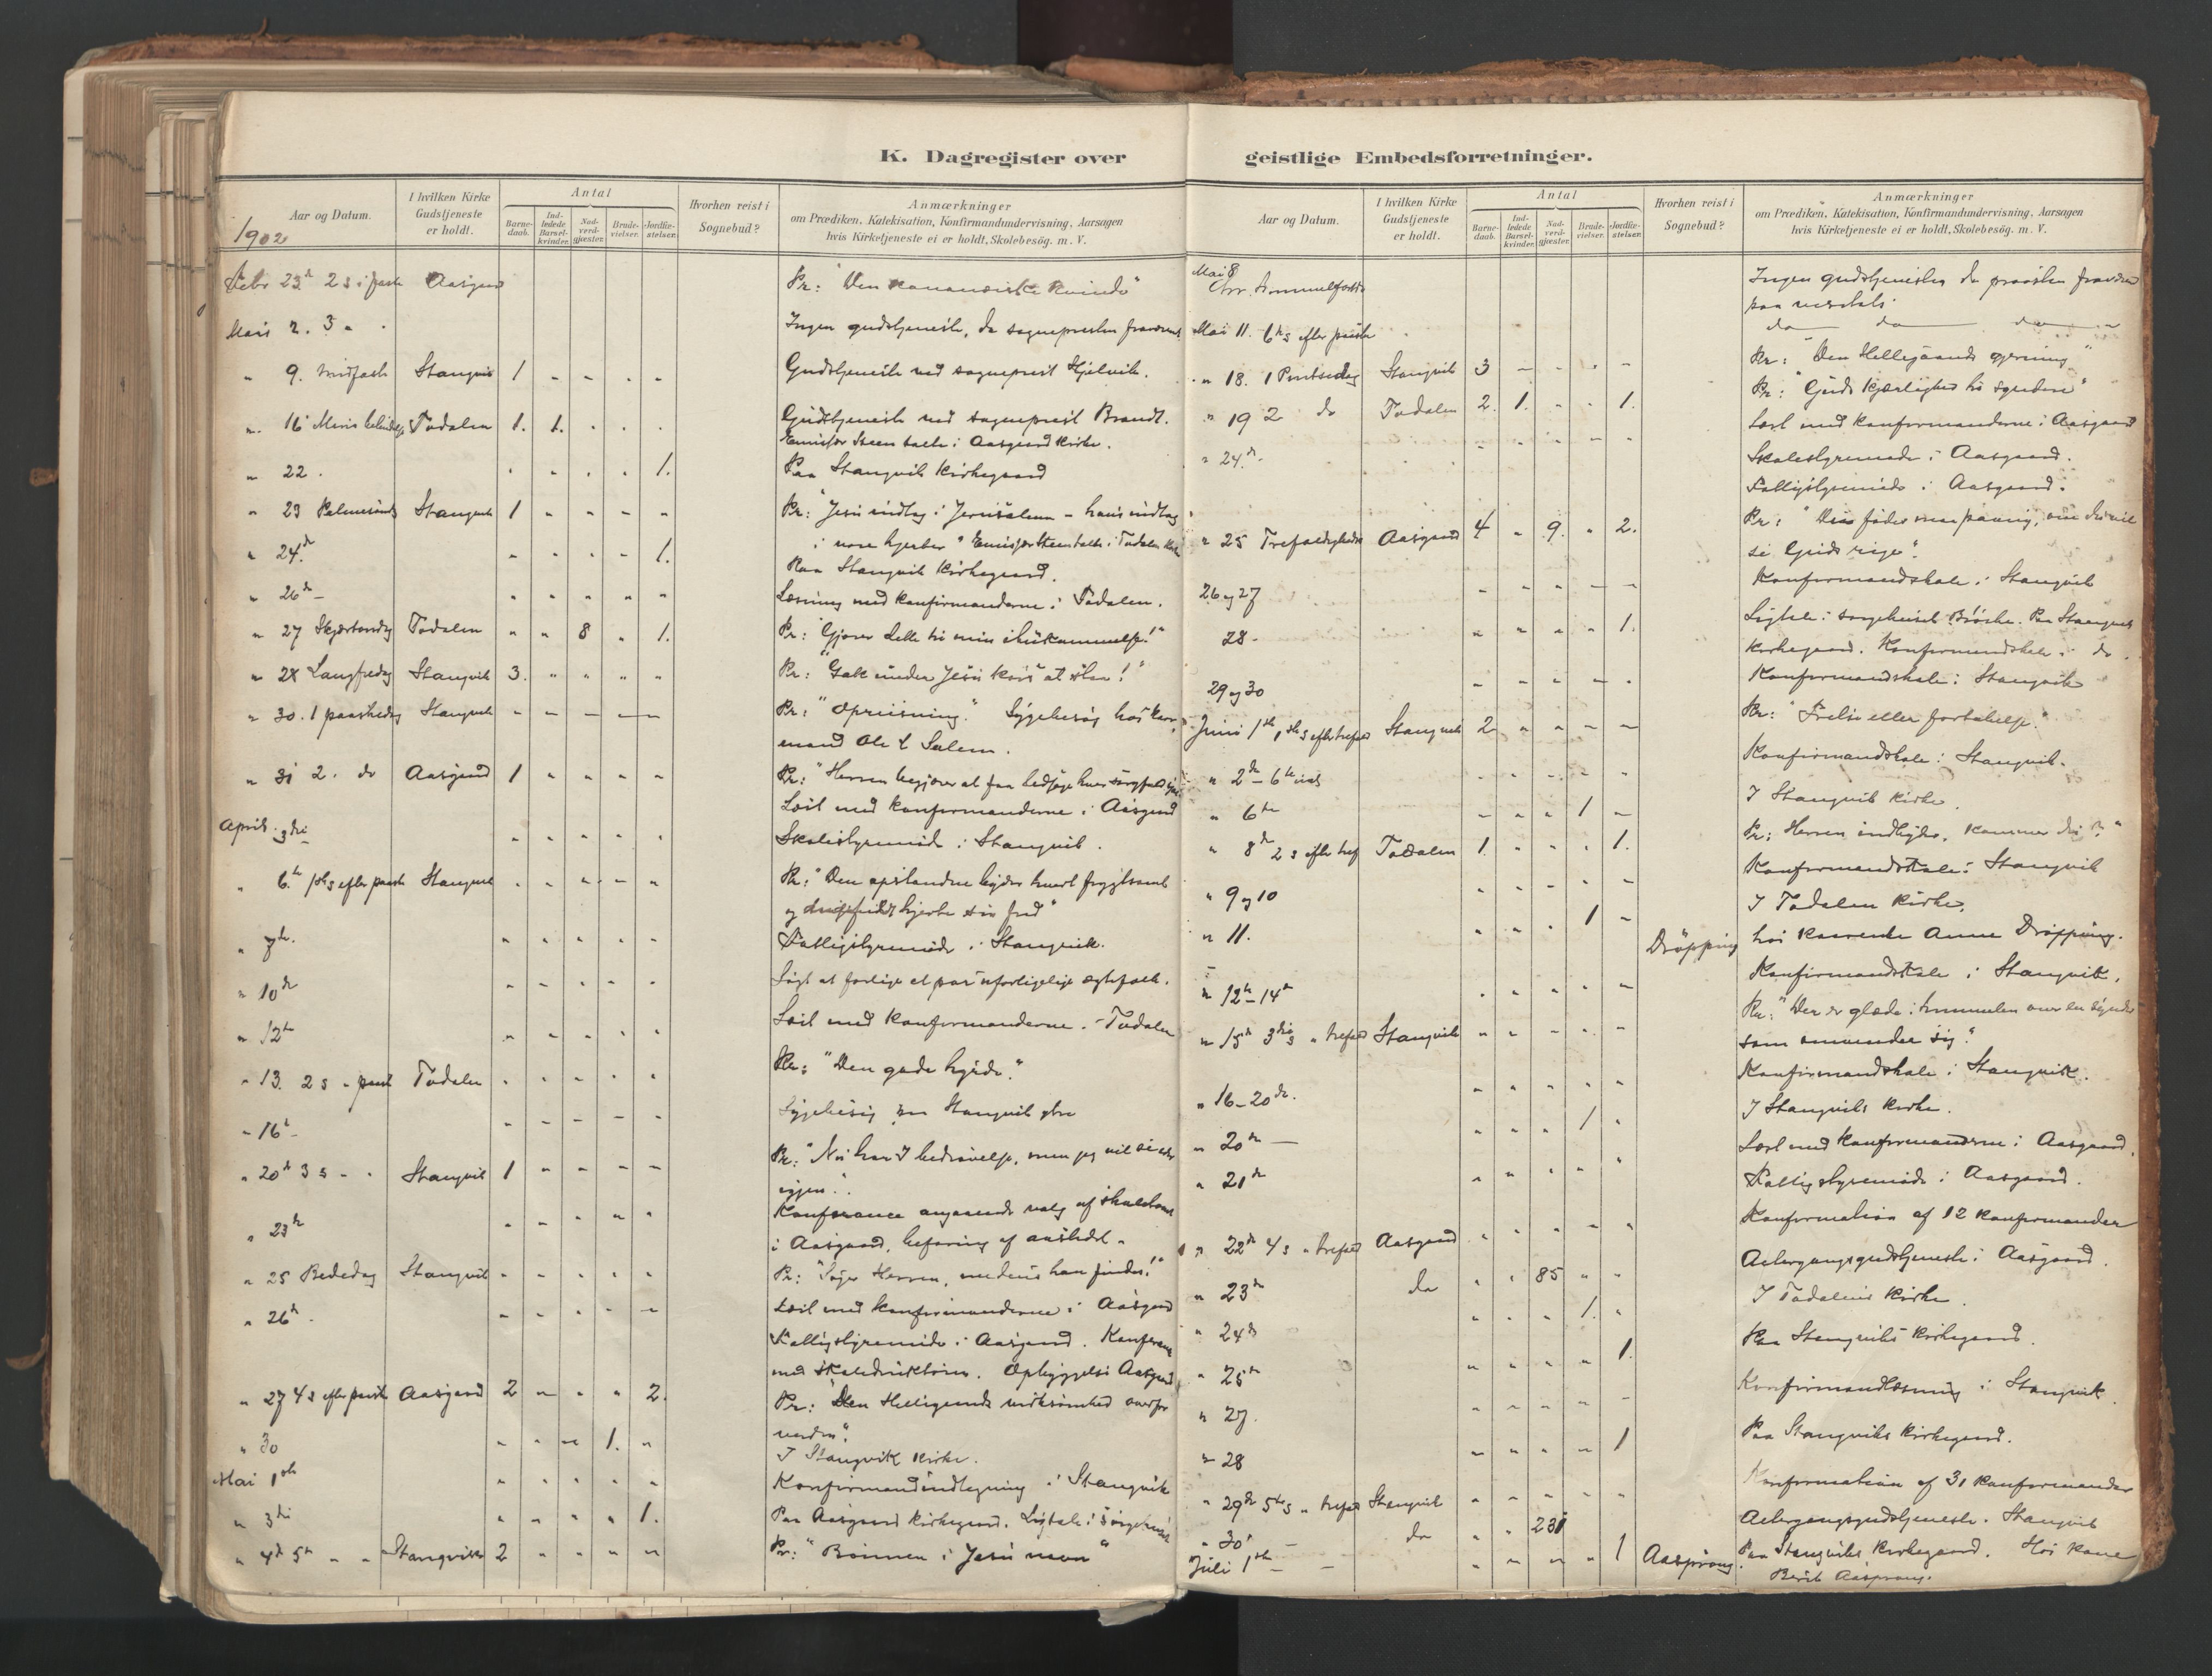 K. Dagregister over geistlige Embedsforretninger.
Aar og Datum. I hvilken Kirke Gudstjeneste er holdt. Antal Barnedaab. Indledede Barselkvinder. Nadverdgjæster. Brudevielser. Jordfæstelser. Hvorhen reist i Sognebud? Anmærkninger
om Prædiken, Katekisation, Konfirmandundervisning, Aarsagen
hvis Kirketjeneste ei er holdt, Skolebesög. m. V.
1902
Febr 23d 2 s i faste Aasgaard Pr: "Den kananæiske kvinde"
Mars 2. 3 " " Ingen gudstjeneste, da sognepresten fraværende
" 9. midfaste Stangvik 1 - - - - Gudstjeneste ved sogneprest Hjelvik.
" 16 Mariæ bebudelse Todalen 1. 1. - - - Gudstjeneste ved sogneprest Brandt.
Emissær Steen talte i Aasgaard kirke.
" 22. - - - - 1. Paa Stangvik kirkegaard
" 23 Palmesøndag Stangvik 1 - - - - Pr: "Jesu indtog i Jerusalem - hans indtog
i vore hjerter" Emissær Steen talte i Todalen kirke
" 24d - - - - 1. Paa Stangvik kirkegaard.
" 26de - - - - - Læsning med konfirmanderne i Todalen.
" 27 Skjærtorsdag Todalen " " 8 " 1. Pr: "Gjører dette til min ihukommelse!"
" 28 Langfredag Stangvik 3. " " " " Pr: "Gak under Jesu kors at staa!"
" 30. 1 paaskedag Stangvik - - - - - Pr: "Opreisning." Sygebesøg hos
mand Ole L Salem.
" 31 2. do Aasgaard 1 " " " " Pr: "Herren begjærer at faa
Læst med konfirmanderne i Aasgaard
April 3die - - - - - Skolestyremøde i Stangvik.
" 6te 1ste s efter paaske Stangvik - - - - - Pr: "Den opstandne byder hvert frygtsomt
og hjerte sin fred"
" 7de. - - - - - Fattigstyremøde i Stangvik.
" 10de - - - - - Søgt at forlige et par uforligelige ægtefolk.
" 12te - - - - - Læst med konfirmanderne i Todalen
" 13. 2 s " paaske Todalen - - - - - Pr: "Den gode hyrde."
" 16de - - - - - Sygebesøg paa Stangvik
" 20de 3 s " " Stangvik 1 - - - - Pr: "Nu har I bedrøvelse, men jeg vil se eder
igjen".
" 23de - - - - - Konferance angaaende valg af skoletomt
i Aasgaard, befaring af
" 25 Bededag Stangvik - - - - - Pr: "Søger Herren, medens han findes!"
" 26de. - - - - - Læst med konfirmanderne i Aasgaard
Fattigstyremøde i Aasgaard. Konferance
med skoledirektøren. Opbyggelse Aasgaard
" 27 4 s efter paaske Aasgaard 2 - - - 2. Pr: "Den Helligaands virksomhed overfor
verden".
" 30 - - - 1. - I Stangvik kirke.
Mai 1ste - - - - - Konfirmandindtegning i Stangvik
" 3die - - - - 1. Paa Aasgaard kirkegaard. Ligtale i sørgehuset
" 4de 5te " " Stangvik 2 - - - - Pr: "Bønnen i Jesu navn"
Aar og Datum. I hvilken Kirke Gudstjeneste er holdt. Antal Barnedaab. Indledede Barselkvinder. Nadverdgjæster. Brudevielser. Jordfæstelser. Hvorhen reist i Sognebud? Anmærkninger
om Prædiken, Katekisation, Konfirmandundervisning, Aarsagen
hvis Kirketjeneste ei er holdt, Skolebesög. m. V.
Mai 8 Chr. himmelfartsd Ingen gudstjeneste, da presten fraværende
paa
Mai 11. 6te s efter paaske do do do
" 18. 1 Pintsedag Stangvik 3 - - - - Pr: "Den Helligaands gjerning"
" 19 2 do Todalen 2. 1. - - 1. Pr: "Guds kjærlighed til syndere"
" 24de - - - - - Læst med konfirmanderne i Aasgaard
Skolestyremøde i Aasgaard.
Fattigstyremøde i Aasgaard.
" 25 Trefoldigheds Aasgaard 4 - 9. " 2. Pr: "Du maa fødes paany, om du vil
se Guds rige".
26 og 27 - - - - - Konfirmandskole i Stangvik
28 - - - - - 1. Ligtale i sørgehuset Brøske. Paa Stangvik
kirkegaard. Konfirmandskole i do.
29 og 30 - - - - - Konfirmandskole i Stangvik
Juni 1ste 1ste s efter trefold Stangvik 2 - - - - Pr: "Frelse eller fortabelse."
" 2den - 6te - - - - - Konfirmandskole i Stangvik.
" 6te - - - 1 - I Stangvik kirke.
" 8de 2 s efter tref Todalen 1. - - - 1. Pr: Herren indbyder. Kommer du?"
" 9 og 10 - - - - - Konfirmandskole i Stangvik
" 11. - - - 1 - I Todalen kirke.
Drøpping hos Anne Drøpping.
" 12te - 14de - - - - - Konfirmandskole i Stangvik.
" 15de 3die s " trefold Stangvik - - - - - Pr: "Der er glæde i himmelen over en synder
som omvender sig".
" 16 - 20de. - - - - - Konfirmandskole i Stangvik.
" 20de - - - - 1 - I Stangviks kirke.
" 21de - - - - - Læst med konfirmanderne i Aasgaard.
Fattigstyremøde i Aasgaard.
" 22de 4 s " trefold Aasgaard - - - - - Konfirmation af 12 konfirmander
" 23de do - - 85 - - Altergangsgudstjeneste i Aasgaard.
" 24de - - - 1. - I Todalens kirke.
" 25de - - - - 1. Paa Stangviks kirkegaard.
" 27. - - - - - Konfirmandlæsning i Stangvik.
" 28 - - - - 1 Paa Stangviks kirkegaard.
" 29de 5te s " trefold Stangvik - - - - - Konfirmation af 31 konfirmander
" 30 - do - - 231 Altergangsgudstjeneste. Stangvik
Juli 1ste - - - - - 1 Aasprong. Paa Stangviks kirkegaard. Hos kone
Berit Aasprong.